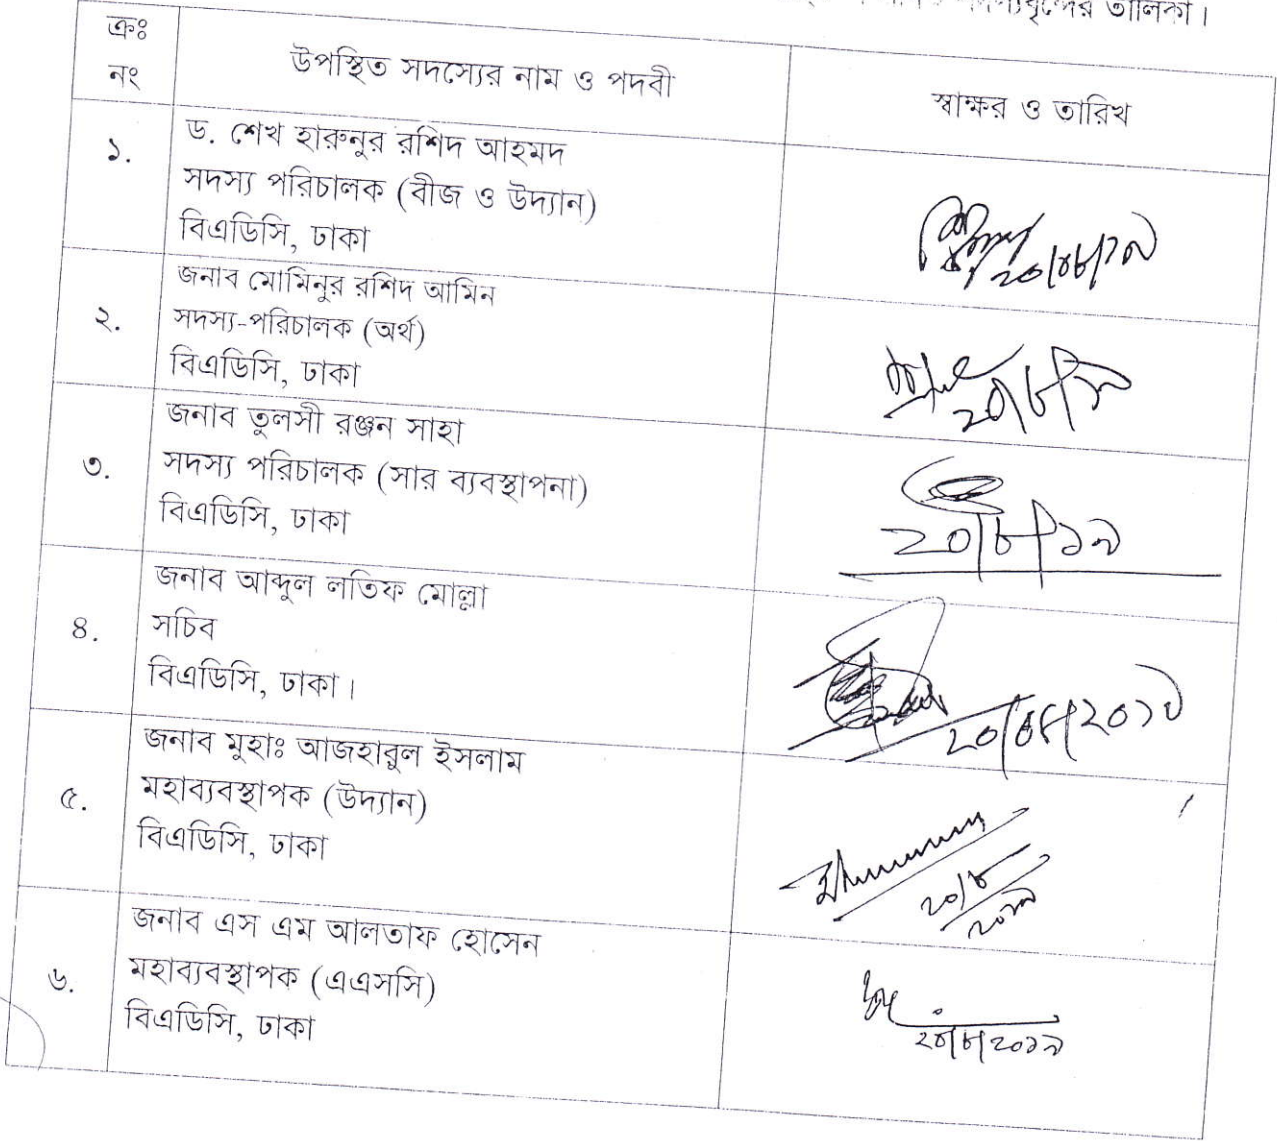 তালিকা।
ক্রঃ
নং
উপস্থিত সদস্যের নাম ও পদবী
স্বাক্ষর ও তারিখ
১.
ড. শেখ হারুনুর রশিদ আহমদ
সদস্য পরিচালক (বীজ ও উদ্যান)
বিএডিসি, ঢাকা
২০/০৮/১৯
২.
জনাব মোমিনুর রশিদ আমিন
সদস্য-পরিচালক (অর্থ)
বিএডিসি, ঢাকা
২০/৮/১৯
৩.
জনাব তুলসী রঞ্জন সাহা
সদস্য পরিচালক (সার ব্যবস্থাপনা)
বিএডিসি, ঢাকা
২০/৮/১৯
৪.
জনাব আব্দুল লতিফ মোল্লা
সচিব
বিএডিসি, ঢাকা।
২০/০৮/২০১৯
৫.
জনাব মুহাঃ আজহারুল ইসলাম
মহাব্যবস্থাপক (উদ্যান)
বিএডিসি, ঢাকা
২০/৮
২০১৯
৬.
জনাব এস এম আলতাফ হোসেন
মহাব্যবস্থাপক (এএসসি)
বিএডিসি, ঢাকা
২০/৮/২০১৯